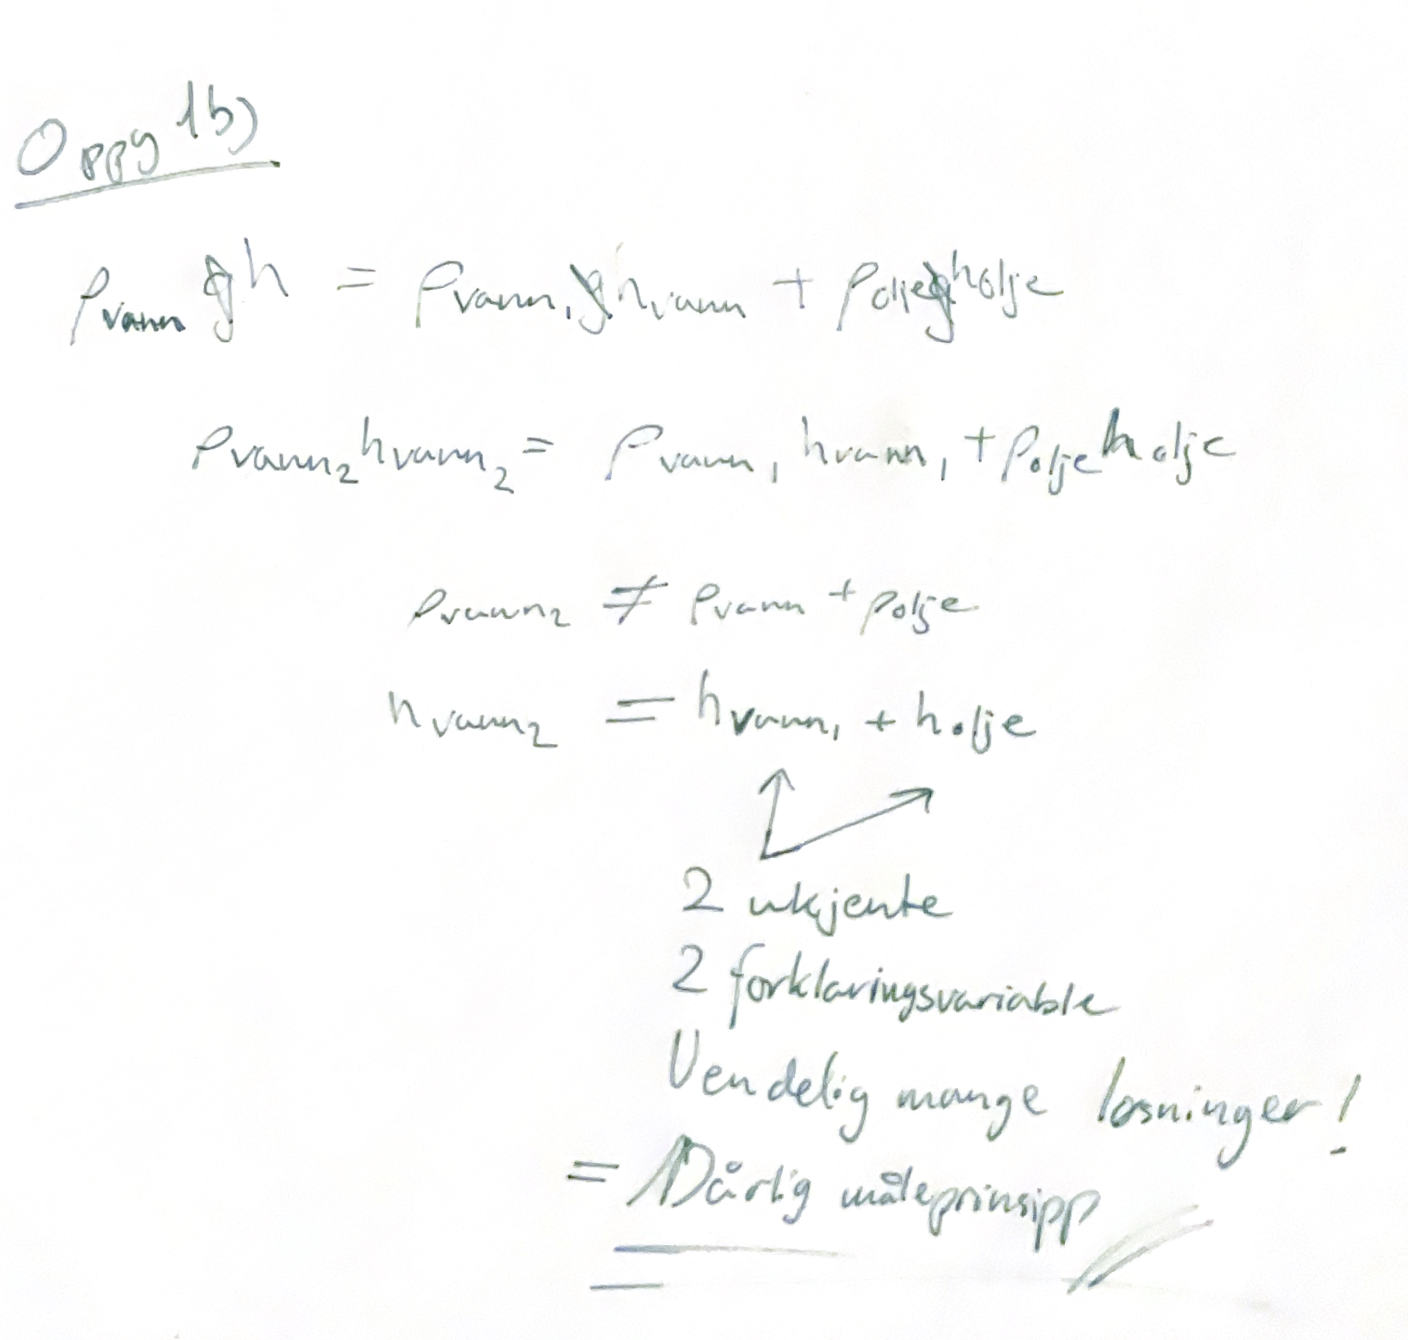 Oppg 1b)
ρvann gh = ρvann₁ghvann + ρoljegholje
ρvann₂hvann₂ = ρvann₁ hvann₁ + ρoljeholje
ρvann₂ ≠ ρvann + ρolje
hvann₂ = hvann₁ + holje
2 ukjente
2 forklaringsvariable
Uendelig mange løsninger!
= Dårlig måleprinsipp